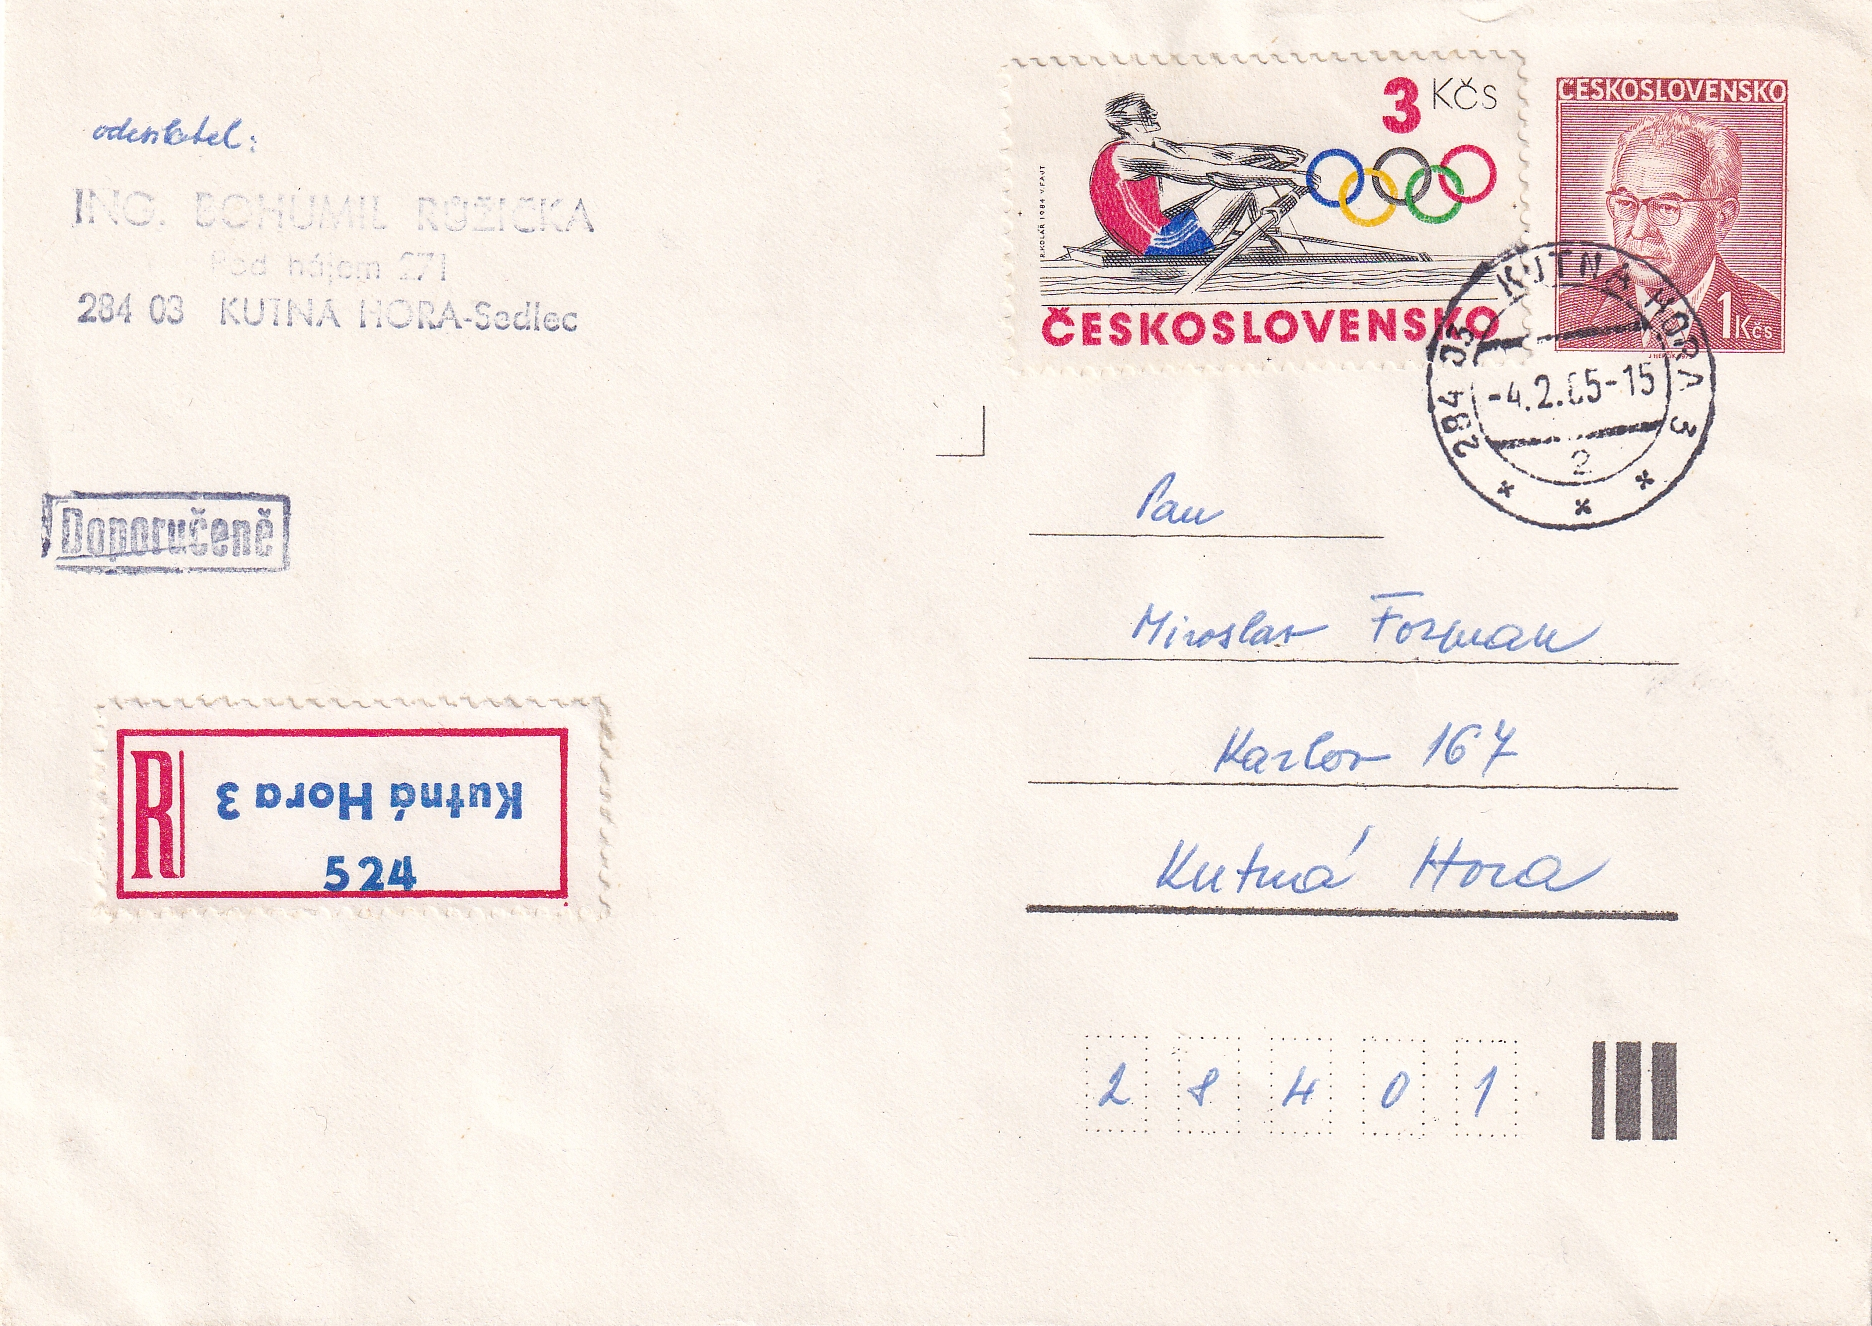 odesilatel:
ING. BOHUMIL RŮŽIČKA
Pod hájem 271
284 03 KUTNÁ HORA-Sedlec
3 Kčs
R. KOLÁŘ 1984 V. FAJT
ČESKOSLOVENSKO
ČESKOSLOVENSKO
1 Kčs
284 03 KUTNÁ HORA 3
-4.2.85-15
2
Doporučeně
Pan
Miroslav Forman
Karlov 167
Kutná Hora
28401
R
Kutná Hora 3
524